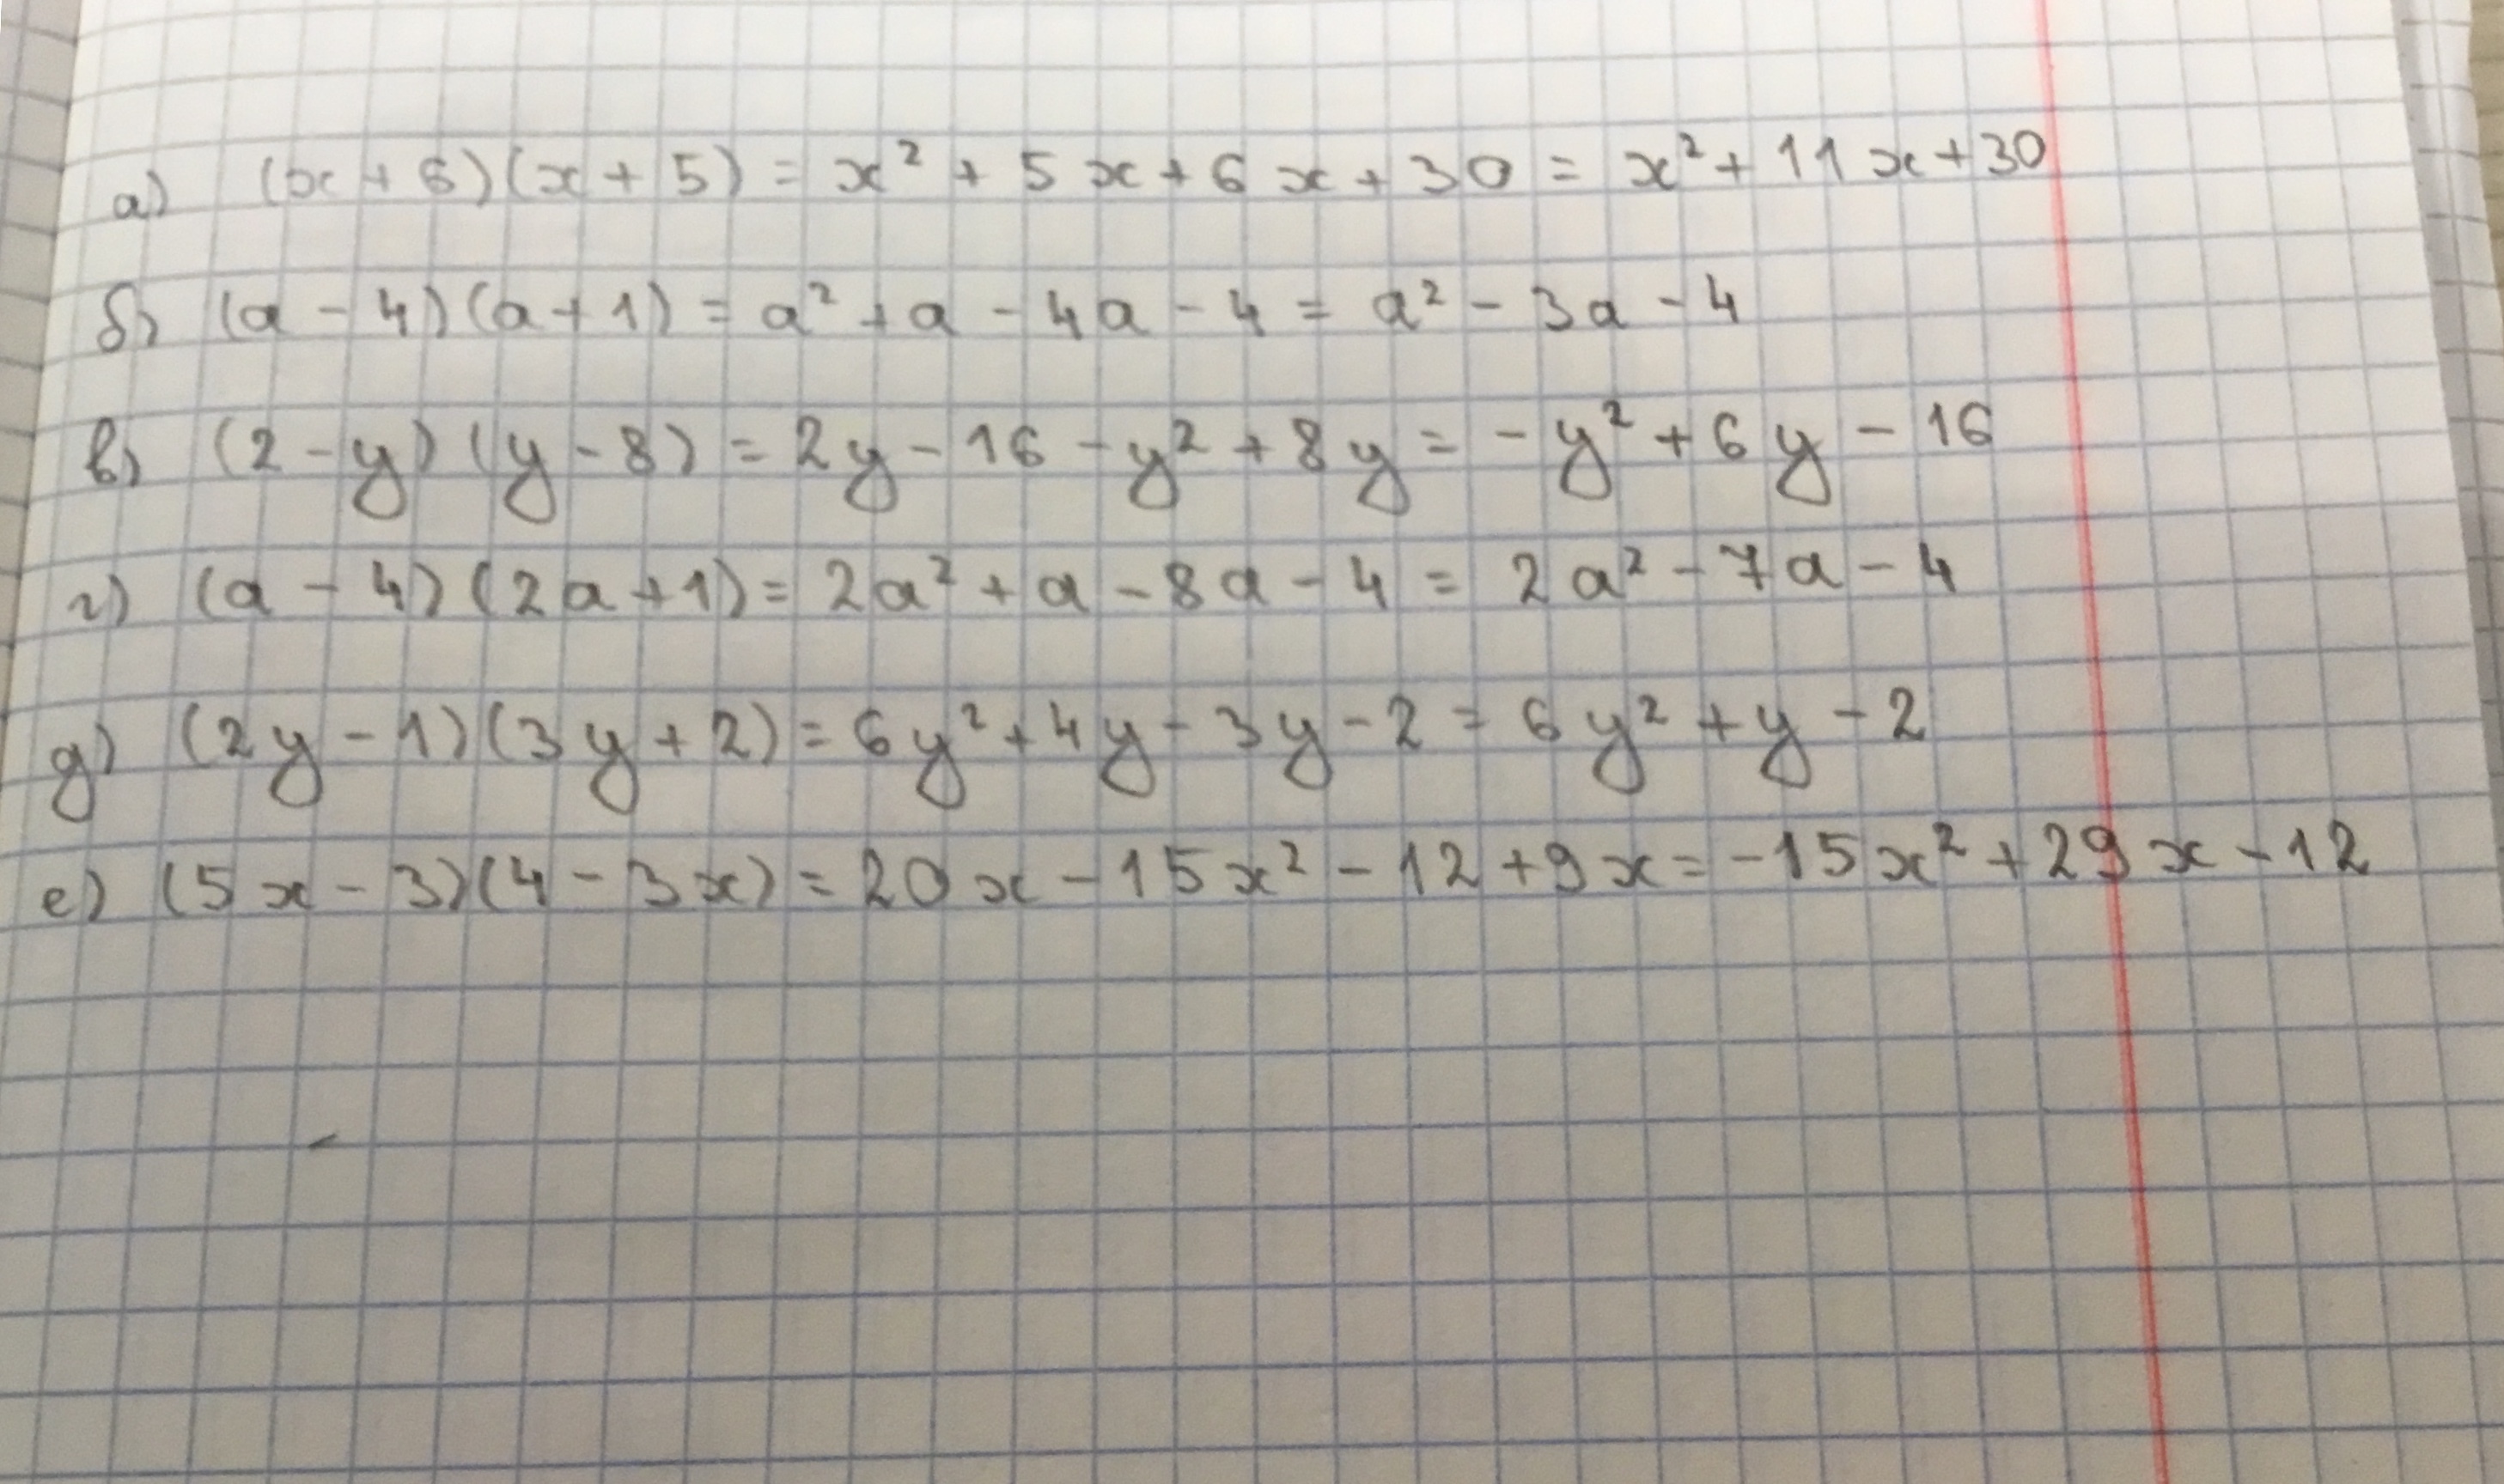 а) (x + 6)(x + 5) = x² + 5x + 6x + 30 = x² + 11x + 30
б) (a - 4)(a + 1) = a² + a - 4a - 4 = a² - 3a - 4
в) (2 - y)(y - 8) = 2y - 16 - y² + 8y = - y² + 6y - 16
г) (a - 4)(2a + 1) = 2a² + a - 8a - 4 = 2a² - 7a - 4
д) (2y - 1)(3y + 2) = 6y² + 4y - 3y - 2 = 6y² + y - 2
е) (5x - 3)(4 - 3x) = 20x - 15x² - 12 + 9x = -15x² + 29x - 12